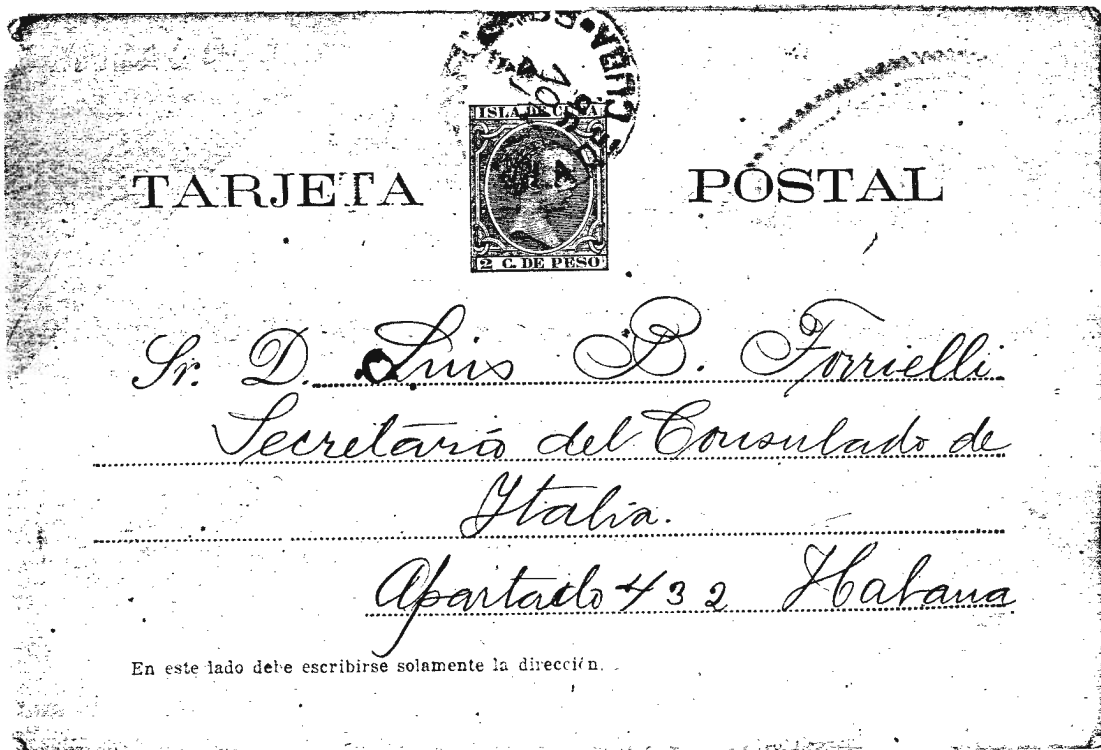 CUBA
ISLA DE CUBA
TARJETA POSTAL
2 C. DE PESO
Sr. D. Luis B. Forrielli.
Secretario del Consulado de
Italia.
Apartado 432 Habana
En este lado debe escribirse solamente la dirección.